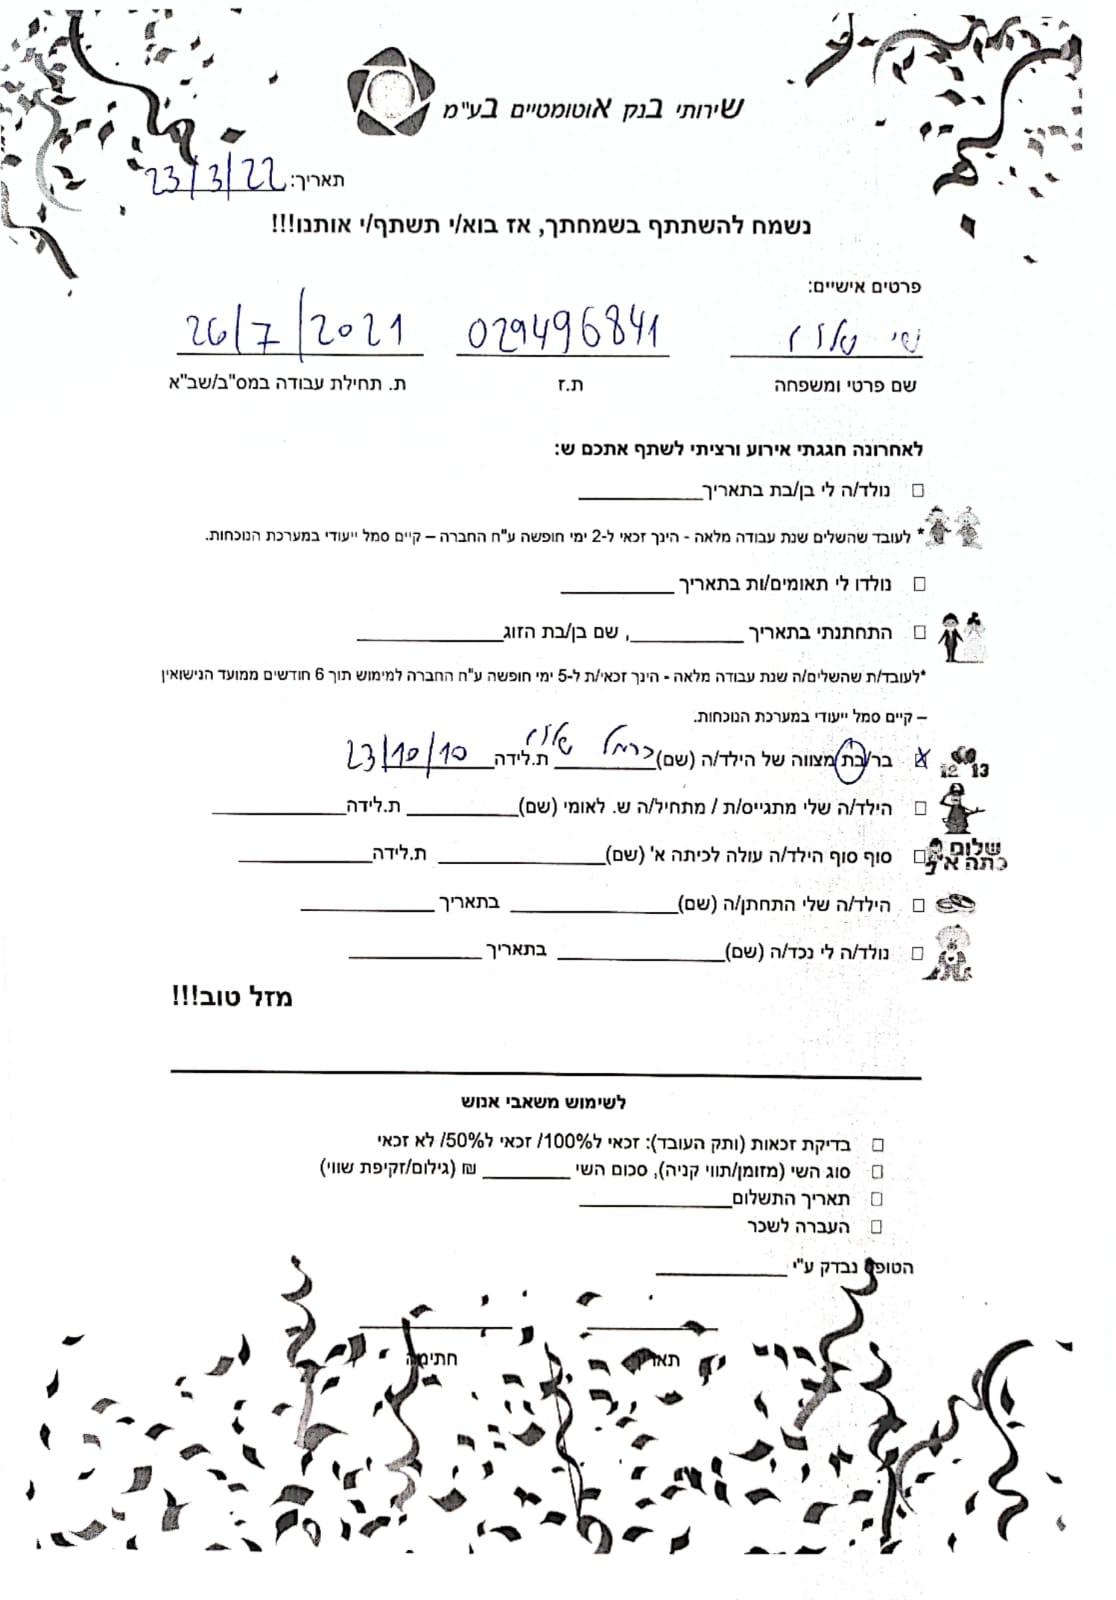 שירותי בנק אוטומטיים בע"מ
תאריך: 23/3/22
נשמח להשתתף בשמחתך, אז בוא/י תשתף/י אותנו!!!
פרטים אישיים:
שי 029496841 26/7/2021
שם פרטי ומשפחה ת.ז ת. תחילת עבודה במס"ב/שב"א
לאחרונה חגגתי אירוע ורציתי לשתף אתכם ש:
נולד/ה לי בן/בת בתאריך
* לעובד שהשלים שנת עבודה מלאה - הינך זכאי ל-2 ימי חופשה ע"ח החברה – קיים סמל ייעודי במערכת הנוכחות.
נולדו לי תאומים/ות בתאריך
התחתנתי בתאריך , שם בן/בת הזוג
*לעובד/ת שהשלים/ה שנת עבודה מלאה - הינך זכאי/ת ל-5 ימי חופשה ע"ח החברה למימוש תוך 6 חודשים ממועד הנישואין
– קיים סמל ייעודי במערכת הנוכחות.
12 13 בר/בת מצווה של הילד/ה (שם) כרמל ת.לידה 23/10/10
הילד/ה שלי מתגייס/ת / מתחיל/ה ש. לאומי (שם) ת.לידה
שלום כתה א' סוף סוף הילד/ה עולה לכיתה א' (שם) ת.לידה
הילד/ה שלי התחתן/ה (שם) בתאריך
נולד/ה לי נכד/ה (שם) בתאריך
מזל טוב!!!
לשימוש משאבי אנוש
בדיקת זכאות (ותק העובד): זכאי ל100%/ זכאי ל50%/ לא זכאי
סוג השי (מזומן/תווי קניה), סכום השי ₪ (גילום/זקיפת שווי)
תאריך התשלום
העברה לשכר
הטופס נבדק ע"י
תאריך חתימה